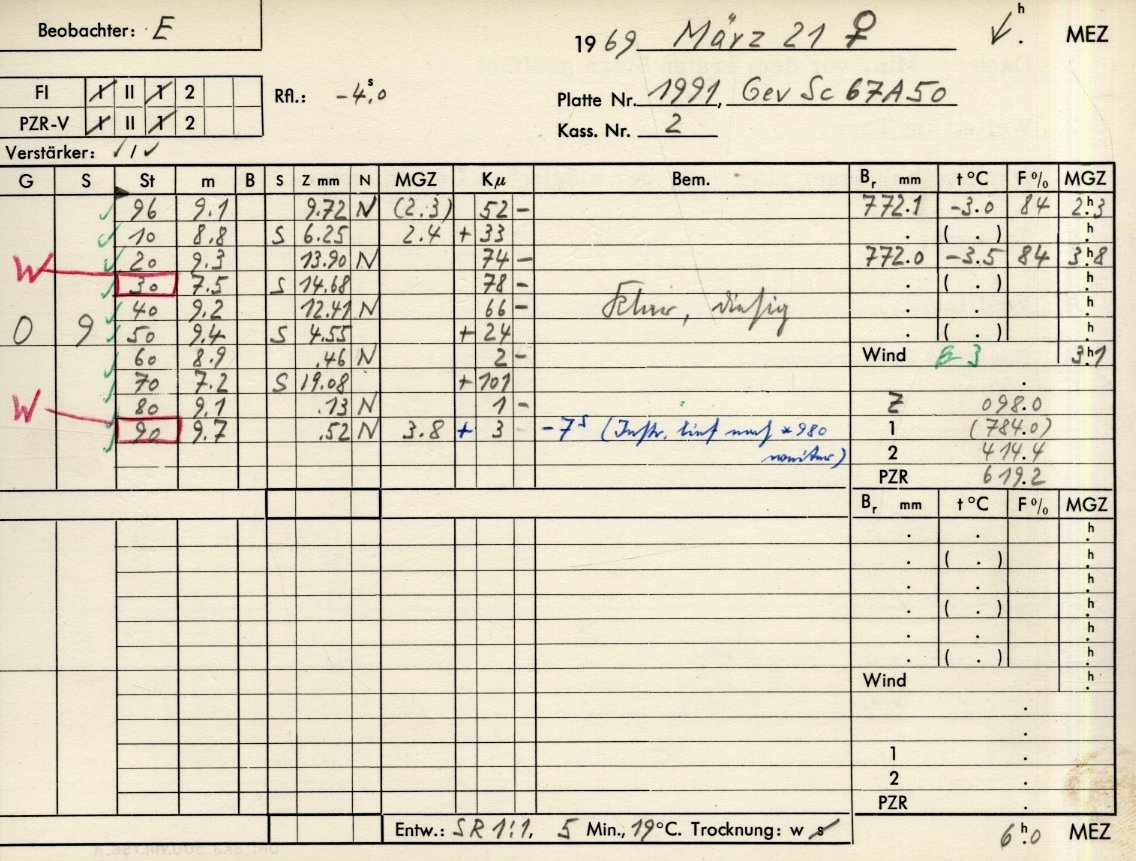 Beobachter: E
1969 März 21 ♀ h . MEZ
FI I II 1 2 Rfl.: -4.ˢ0
PZR-V I II 1 2
Platte Nr. 1991, Gev Sc 67A50
Kass. Nr. 2
Verstärker: / 1 ✓
G S St m B S Z mm N MGZ Kμ Bem. Br mm t °C F% MGZ
✓ 96 9.1 9.72 N (2.3) 52 - 772.1 -3.0 84 2.ʰ3
✓ 10 8.8 S 6.25 2.4 + 33 . ( . ) .ʰ
✓ 20 9.3 13.90 N 74 - 772.0 -3.5 84 3.ʰ8
W ✓ 30 7.5 S 14.68 78 - . ( . ) .ʰ
✓ 40 9.2 12.41 N 66 - Klar, diesig . . .ʰ
0 9 ✓ 50 9.4 S 4.55 + 24 . ( . ) .ʰ
✓ 60 8.9 .46 N 2 - Wind E-3 3.ʰ1
✓ 70 7.2 S 19.08 + 101 .
W ✓ 80 9.1 .13 N 1 - Z 098.0
✓ 90 9.7 .52 N 3.8 + 3 -7ˢ (Instr. lief nach *980 1 (784.0)
weiter) 2 414.4
PZR 619.2
Br mm t °C F% MGZ
. . .ʰ
. ( . ) .ʰ
. . .ʰ
. ( . ) .ʰ
. . .ʰ
. ( . ) .ʰ
Wind .ʰ
.
.
1 .
2 .
PZR .
Entw.: SR 1:1, 5 Min., 19°C. Trocknung: w s 6.ʰ0 MEZ